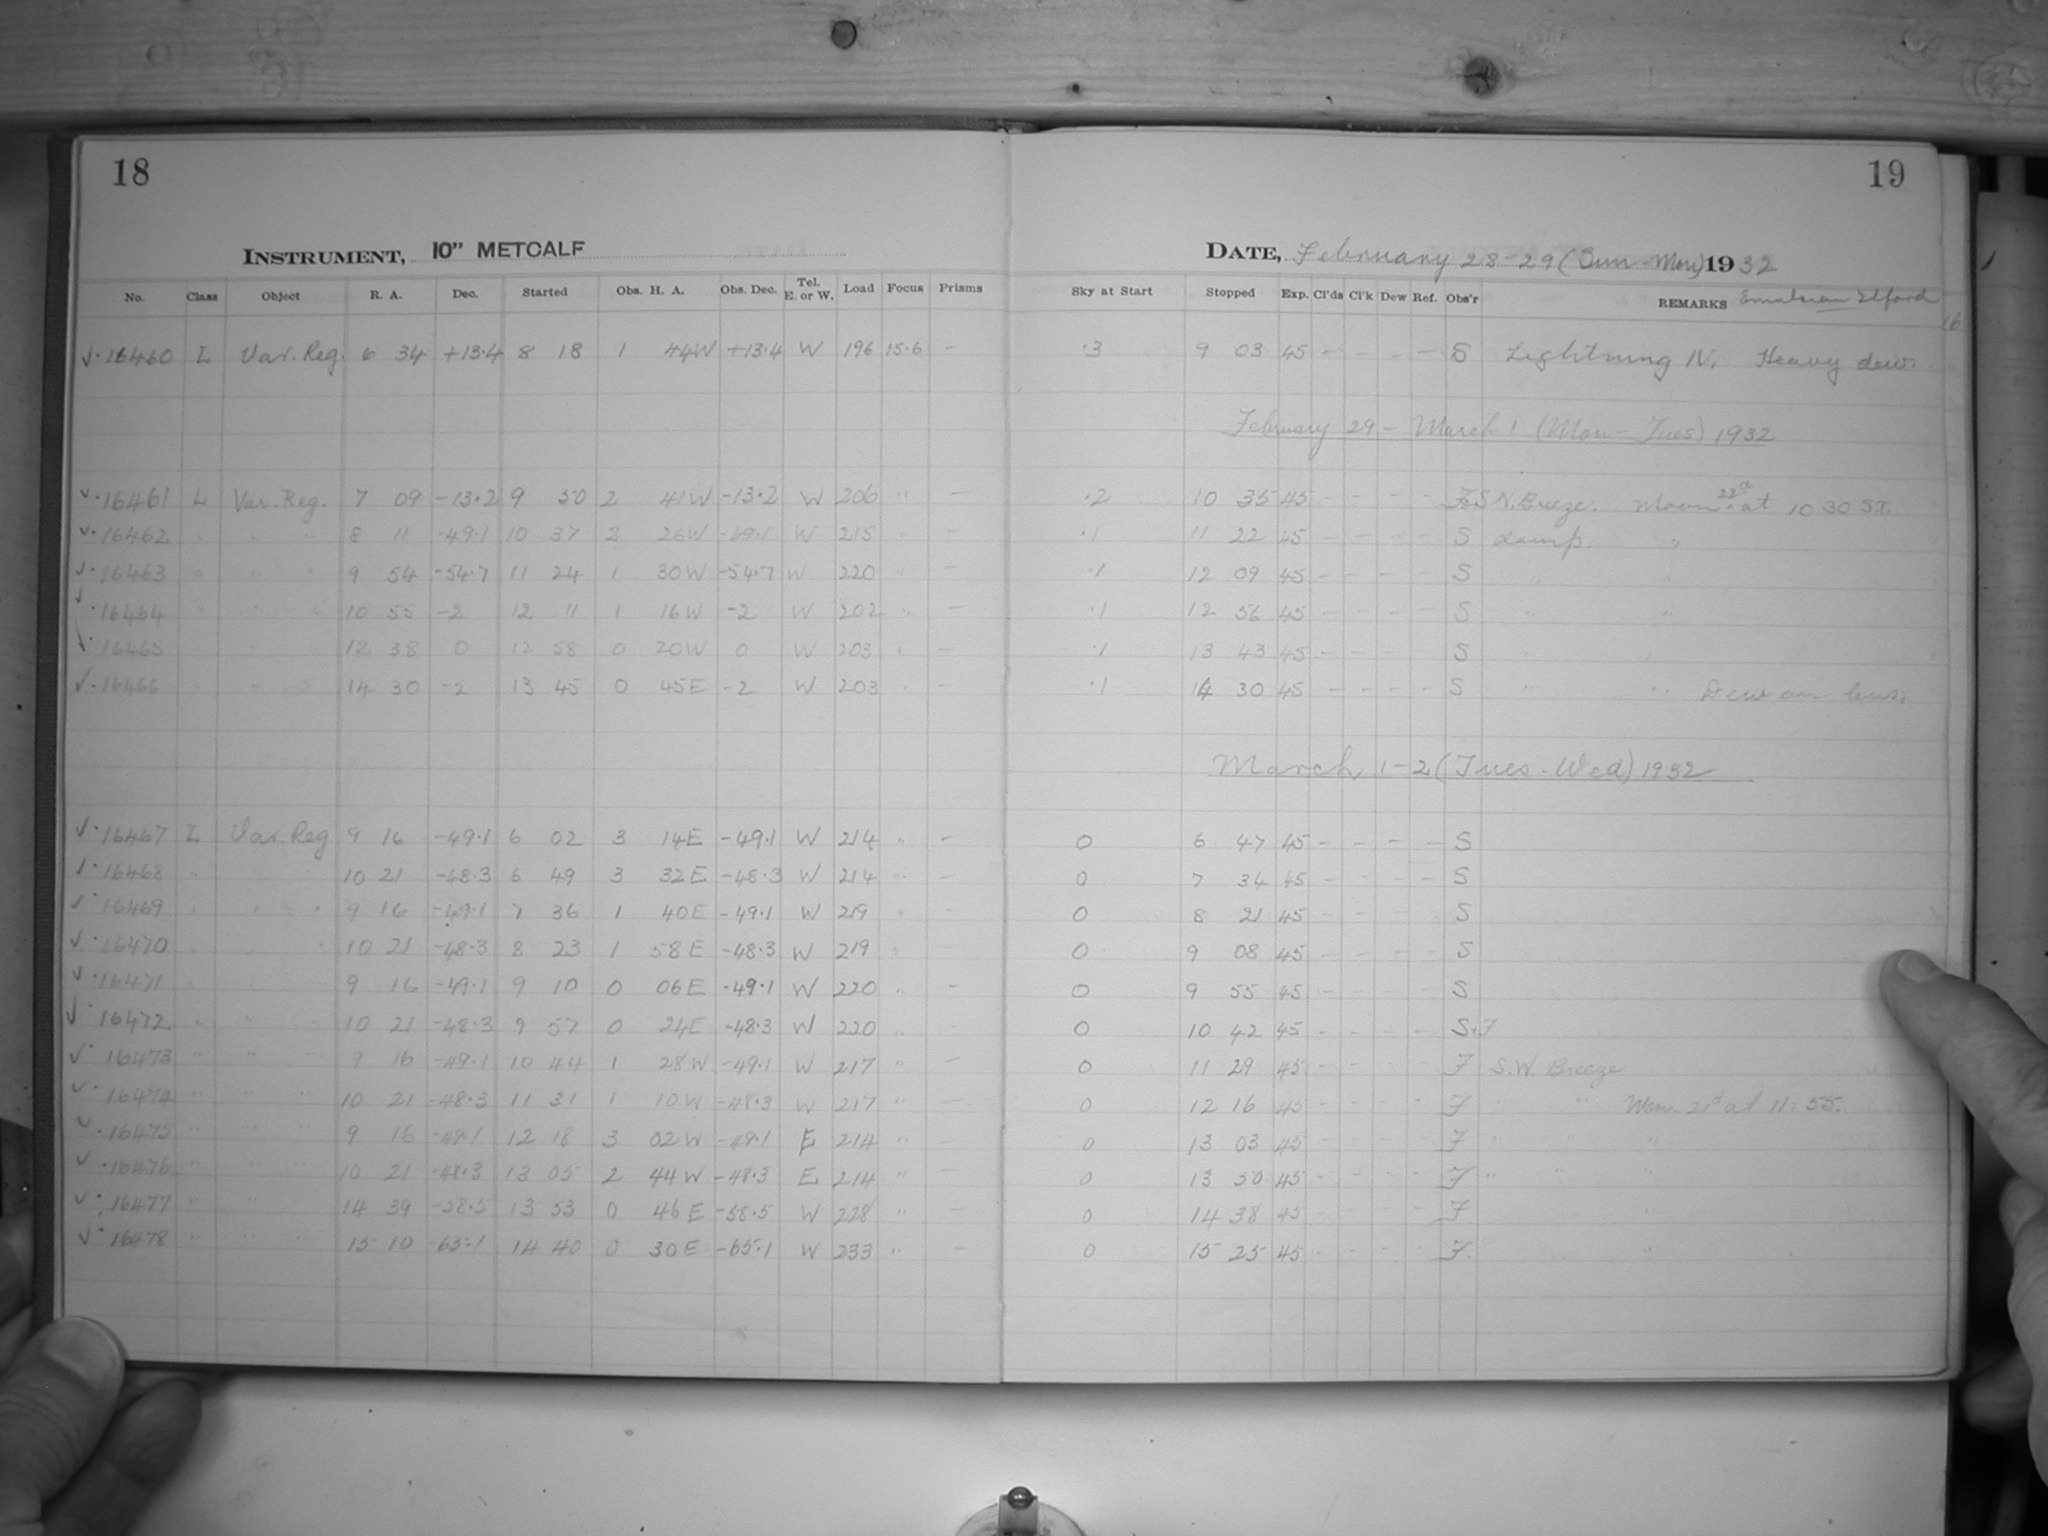 18
19
INSTRUMENT, 10" METCALF
DATE, February 28-29 (Sun-Mon) 1932
No. Class Object R. A. Dec. Started Obs. H. A. Obs. Dec. Tel. E. or W. Load Focus Prisms Sky at Start Stopped Exp. Cl'ds Cl'k Dew Ref. Obs'r REMARKS Emulsion Ilford
16
√· 16460 L Var. Reg. 6 34 +13.4 8 18 1 44W +13.4 W 196 15.6 — .3 9 03 45 - - - - S Lightning N. Heavy dew.
February 29 - March 1 (Mon - Tues) 1932
√· 16461 L Var. Reg. 7 09 -13.2 9 50 2 41W -13.2 W 206 " — .2 10 35 45 - - - - S N. Breeze. Moon 22d at 10 30 S.T.
√· 16462 " " " 8 11 -49.1 10 37 2 26W -49.1 W 215 " — .1 11 22 45 - - - - S damp. "
√· 16463 " " " 9 54 -54.7 11 24 1 30W -54.7 W 220 " — .1 12 09 45 - - - - S " "
√· 16464 " " " 10 55 -2 12 11 1 16W -2 W 202 " — .1 12 56 45 - - - - S " "
√· 16465 " " " 12 38 0 12 58 0 20W 0 W 203 " — .1 13 43 45 - - - - S " "
√· 16466 " " " 14 30 -2 13 45 0 45E -2 W 203 " — .1 14 30 45 - - - - S " " Dew on lens.
March 1-2 (Tues - Wed) 1932
√· 16467 L Var. Reg 9 16 -49.1 6 02 3 14E -49.1 W 214 " — 0 6 47 45 - - - - S
√· 16468 " " " 10 21 -48.3 6 49 3 32E -48.3 W 214 " — 0 7 34 45 - - - - S
√· 16469 " " " 9 16 -49.1 7 36 1 40E -49.1 W 219 " — 0 8 21 45 - - - - S
√· 16470 " " " 10 21 -48.3 8 23 1 58E -48.3 W 219 " — 0 9 08 45 - - - - S
√· 16471 " " " 9 16 -49.1 9 10 0 06E -49.1 W 220 " — 0 9 55 45 - - - - S
√· 16472 " " " 10 21 -48.3 9 57 0 24E -48.3 W 220 " — 0 10 42 45 - - - - S+F
√· 16473 " " " 9 16 -49.1 10 44 1 28W -49.1 W 217 " — 0 11 29 45 - - - - F S.W. Breeze
√· 16474 " " " 10 21 -48.3 11 31 1 10W -48.3 W 217 " — 0 12 16 45 - - - - F " " Moon 21d at 11:55.
√· 16475 " " " 9 16 -49.1 12 18 3 02W -49.1 E 214 " — 0 13 03 45 - - - - F " "
√· 16476 " " " 10 21 -48.3 13 05 2 44W -48.3 E 214 " — 0 13 50 45 - - - - F " " "
√· 16477 " " " 14 39 -58.5 13 53 0 46E -58.5 W 228 " — 0 14 38 45 - - - - F "
√· 16478 " " " 15 10 -65.1 14 40 0 30E -65.1 W 233 " — 0 15 25 45 - - - - F "